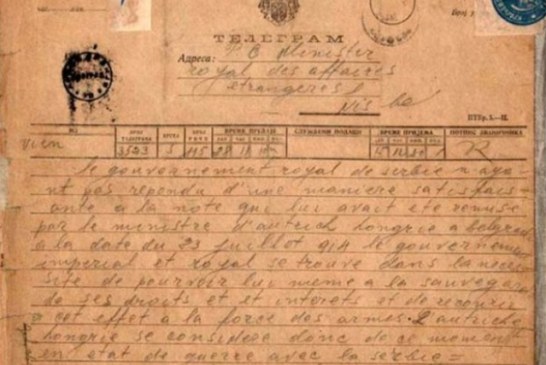 ТЕЛЕГРАМ
Адреса: S E Minister
royal des affaires
etrangeres
Nis
ПТБр. 1.-II.
ВРЕМЕ ПРЕДАЈЕ СЛУЖБЕНИ ПОДАЦИ ВРЕМЕ ПРИЈЕМА
3523 5
le gouvernement royal de serbie n aya
nt pas repondu d'une maniere satisfais
ante a la note qui lui avait ete remise
par le ministre d'autrich hongrie a belgra
a la date du 23 juillet 914 le gouverneme
imperial et royal se trouve dans la neces
site de pourvoir lui meme a la sauvegar
de ses droits et et interets et de recourir
a cet effet a la force des armes. L autriche
hongrie se considere donc de ce moment
en etat de guerre avec la serbie =